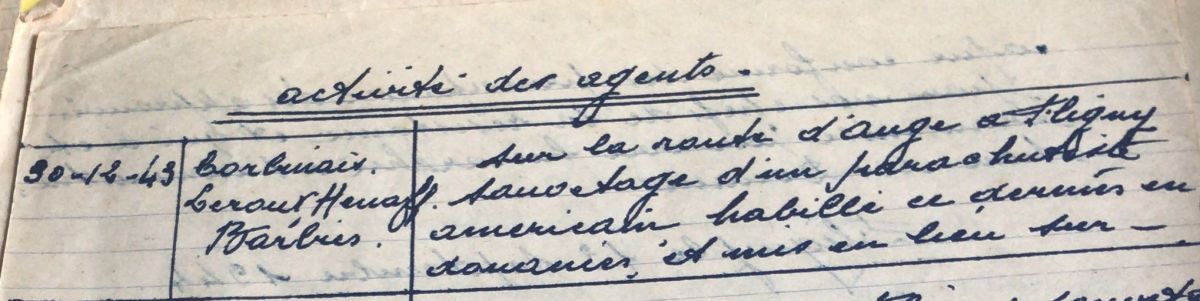 activité des agents.
30-12-43 Corbinais. sur la route d'auge a Fligny
Leroux Henaff. sauvetage d'un parachutiste
Barbris. americain habillé ce dernier en
douanier, et mis en lieu sur -